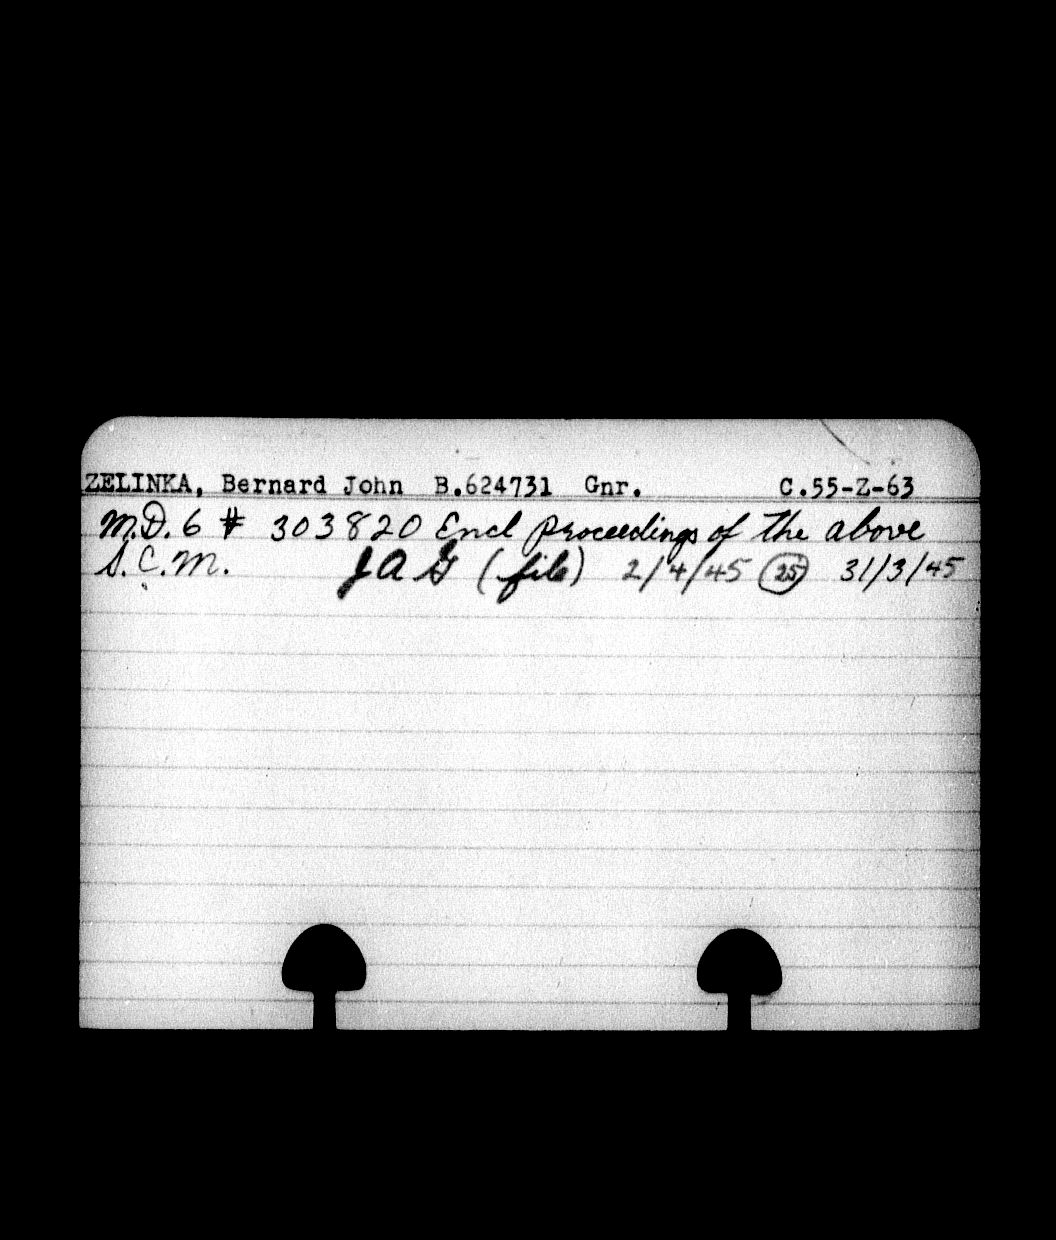 ZELINKA, Bernard John B.624731 Gnr. C.55-Z-63
M.D. 6 # 303820 Encl Proceedings of the above
S.C.M. JAG (file) 2/4/45 25 31/3/45